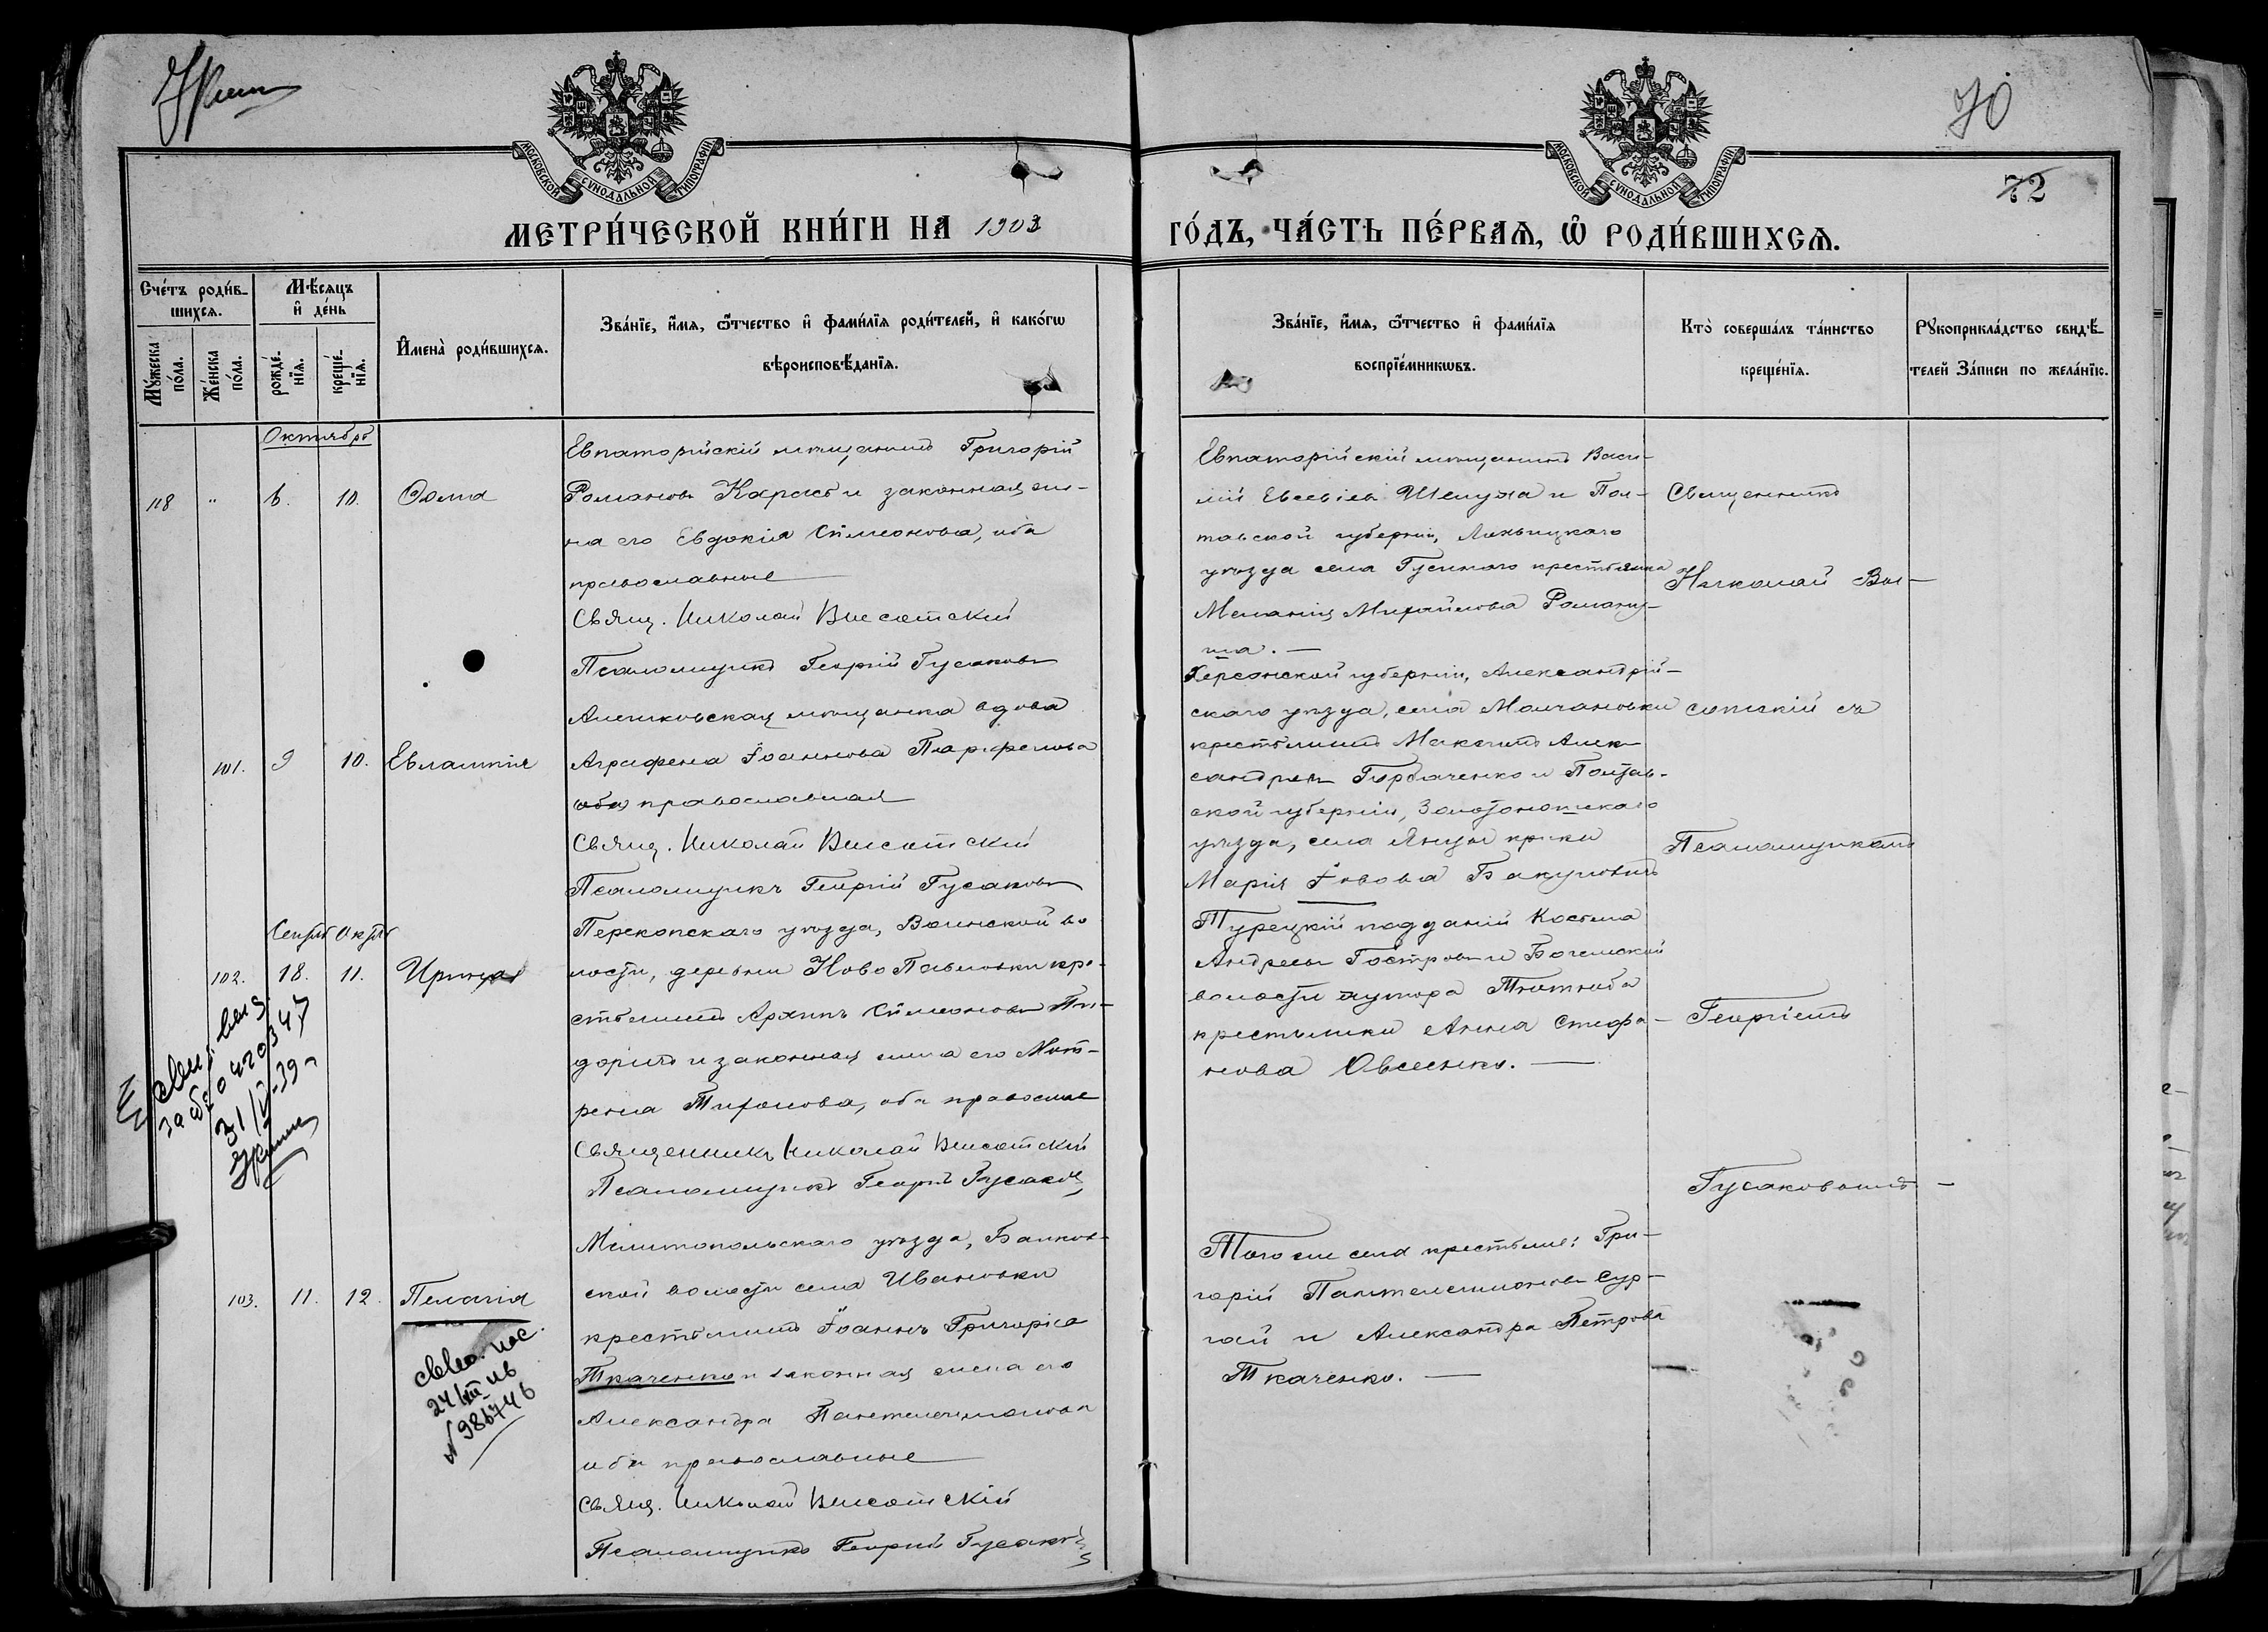 70
МОСКОВСКОЙ СѴНОДАЛЬНОЙ ТИПОГРАФІИ
МОСКОВСКОЙ СѴНОДАЛЬНОЙ ТИПОГРАФІИ
72
МЕТРИ́ЧЕСКОЙ КНИ́ГИ НА 1903
ГО́ДЪ, ЧА́СТЬ ПЕ́РВАЯ, Ѡ РОДИ́ВШИХСЯ.
Сче́тъ роди́в-
шихся.
Му́жеска по́ла.
Же́нска по́ла.
Мѣ́сяцъ
и де́нь
рожде́-
нїя.
креще́-
нїя.
Имена̀ роди́вшихся.
Зва́нїе, и́мя, ѻ́тчество и фами́лїя роди́телей, и како́гѡ
вѣроисповѣ́данїя.
Зва́нїе, и́мя, ѻ́тчество и фами́лїя
воспрїе́мникѡвъ.
Кто̀ соверша́лъ та́инство
креще́нїя.
Рꙋкоприкла́дство свидѣ́-
телей За́писи по жела́нїю.
Октябрь
118 " 6. 10. Ѳома
Евпаторійскій мѣщанинъ Григорій
Романовъ Карась и законная же-
на его Евдокія Сѵмеонова, оба
православные
Свящ. Николай Высотскій
Псаломщикъ Георгій Гусаковъ
Евпаторійскій мѣщанинъ Васи-
лій Евсевіевъ Шелуха и Пол-
тавской губерніи, Лохвицкаго
уѣзда села Гусинаго крестьянка
Меланія Михайлова Роману-
ша.
101. 9 10. Евлампія
Алешковская мѣщанка вдова
Аграфена Іоаннова
православная
Свящ. Николай Высотскій
Псаломщикъ Георгій Гусаковъ
Херсонской губерніи, Александрій-
скаго уѣзда, села Молчановки
крестьянинъ Максимъ Алек-
сандровъ Горбаченко и Полтав-
ской губерніи, Золотоношскаго
уѣзда, села
Марія Іовова Бакуновичъ
Сентяб Октяб
102. 18. 11. Ирина
Перекопскаго уѣзда, Воинской во
лости, деревни Ново Павловки кре-
стьянинъ Архипъ Сѵмеоновъ
и законная жена его Мат-
рена Тихонова, оба православные
Священникъ Николай Высотскій
Псаломщикъ Георгій Гусаковъ
Турецкій подданій Косьма
Андреевъ и
волости хутора
крестьянка Анна Стефа-
нова Овсеенко.
31/V-39 г
103. 11. 12. Пелагія
Мелитопольскаго уѣзда, Балков-
ской волости села Ивановки
крестьянинъ Іоаннъ Григоріевъ
Ткаченко и законная жена его
Александра Пантелеимонова
оба православные
Свящ. Николай Высотскій
Псаломщикъ Георгій Гусаковъ
Того же села крестьяне: Гри-
горій Пантелеимоновъ Сур-
гай и Александра Петрова
Ткаченко.
Священникъ
Николай Вы-
сотскій съ
Псаломщикомъ
Георгіемъ
Гусаковымъ